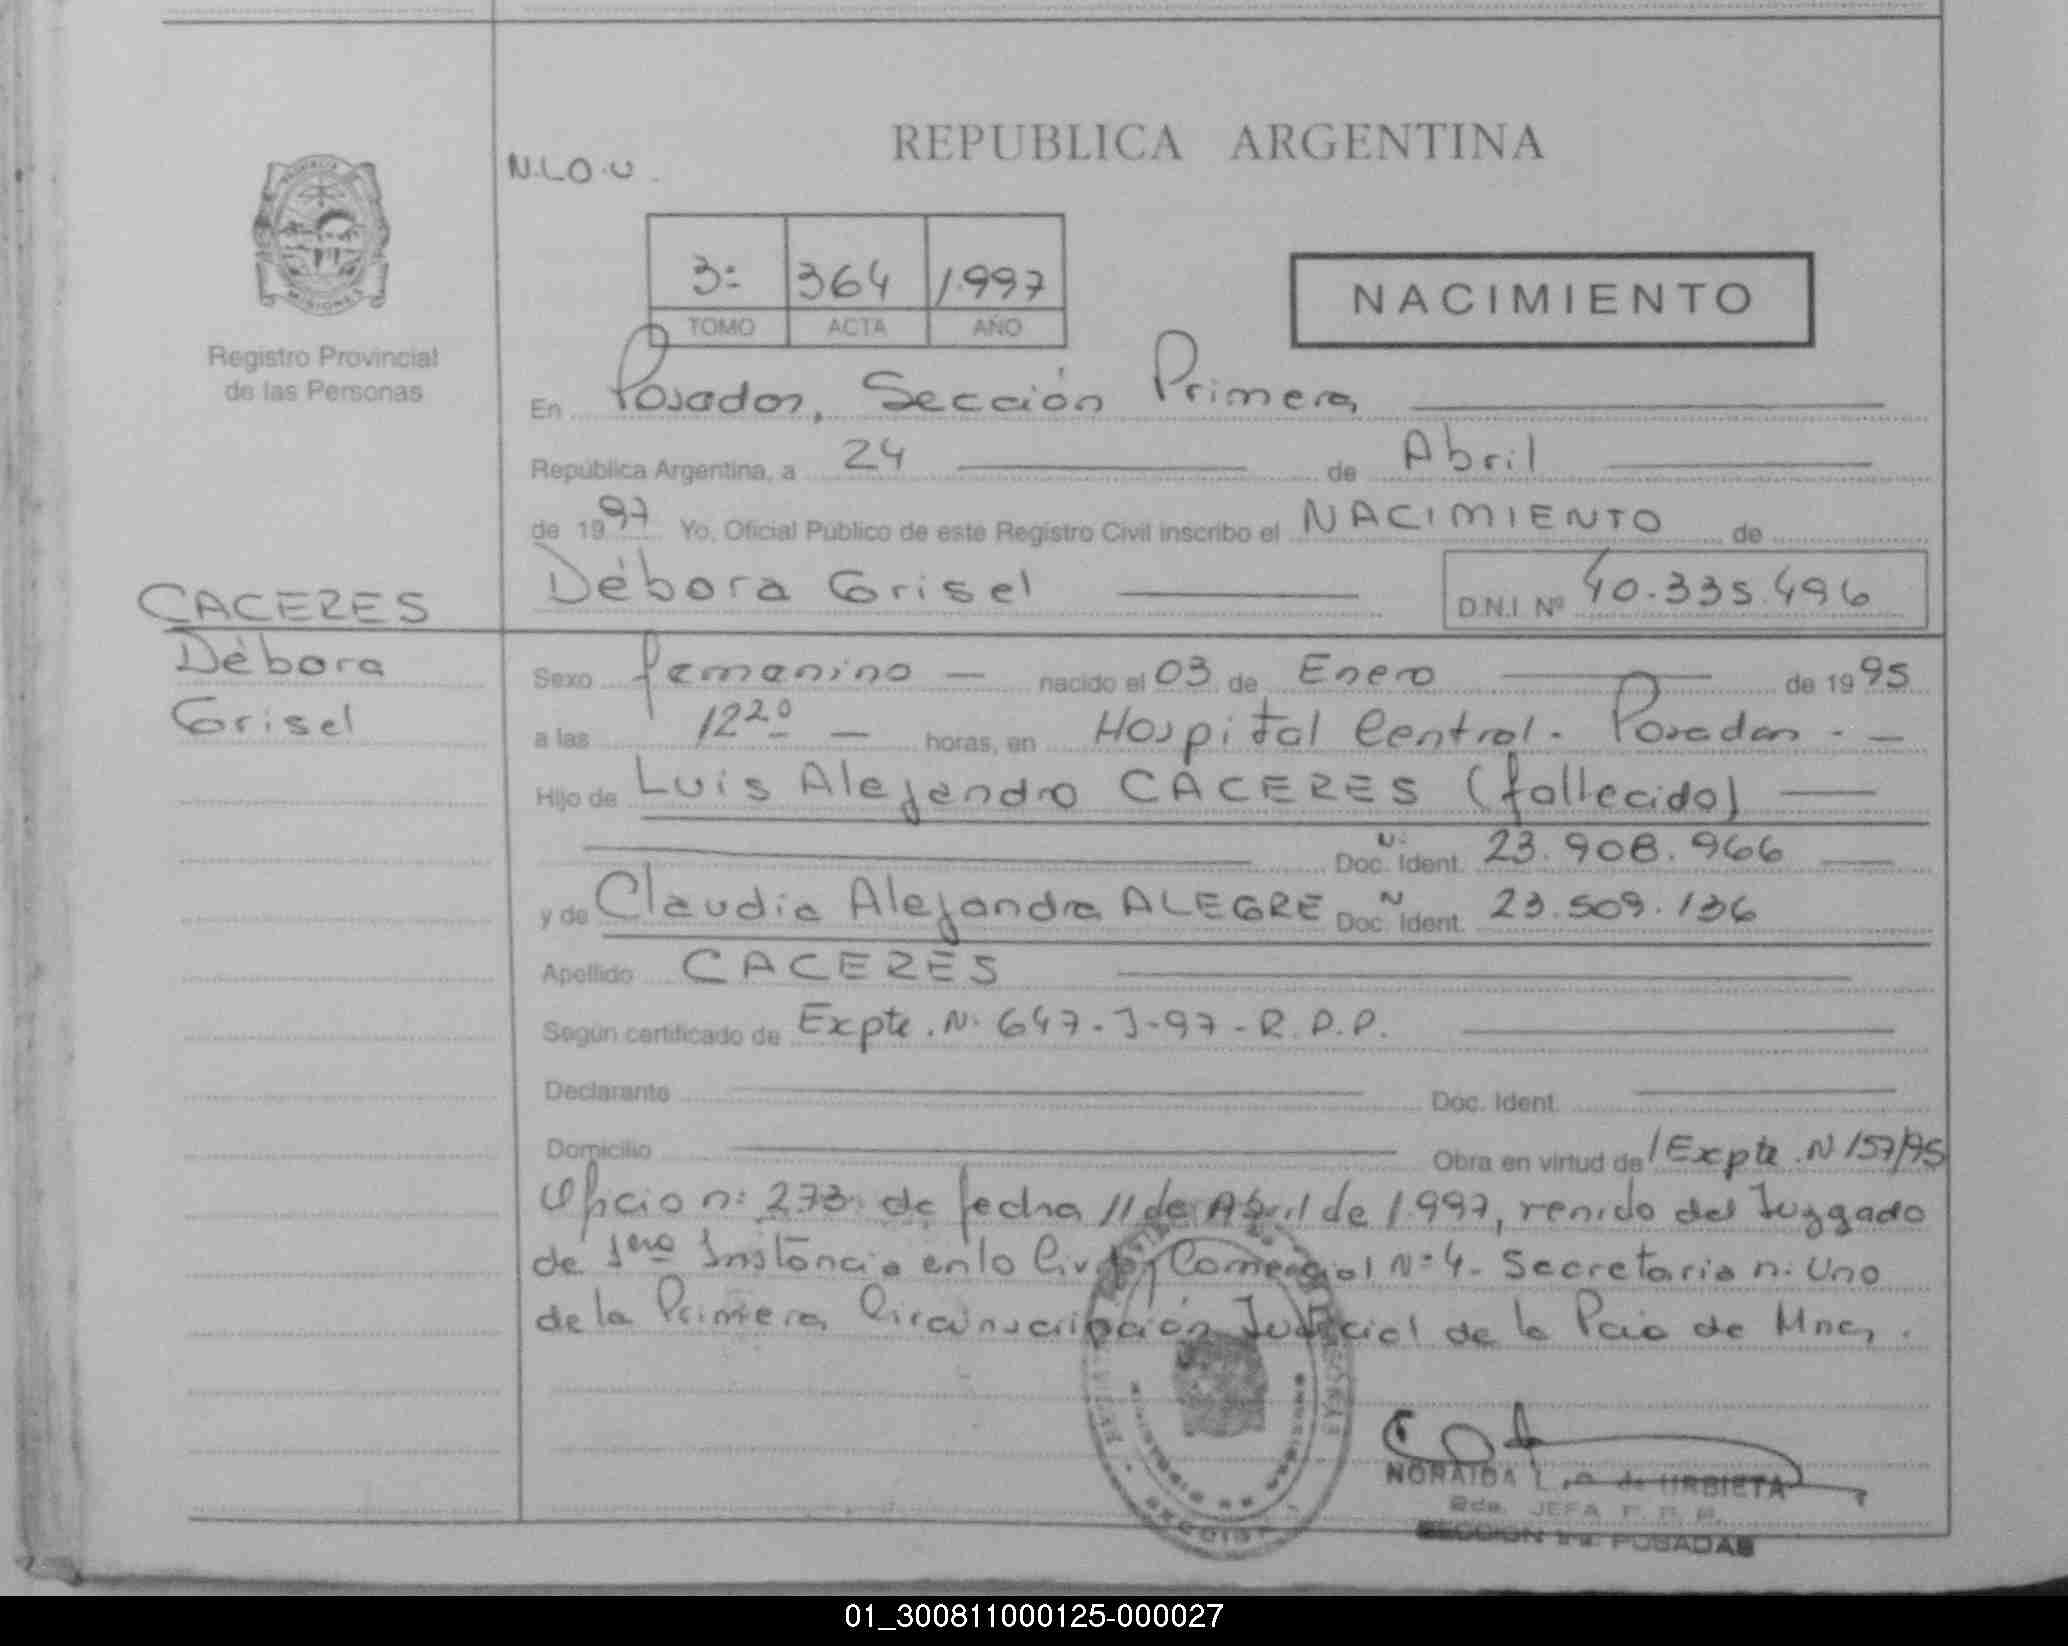 REPUBLICA ARGENTINA
N.L.O.U.
3º 364 1.997
TOMO ACTA AÑO
NACIMIENTO
MISIONES
Registro Provincial
de las Personas
En Posadas, Sección Primera
República Argentina, a 24 de Abril
de 1997 Yo, Oficial Público de este Registro Civil inscribo el NACIMIENTO de
Débora Grisel D.N.I. Nº 40.335.496
CACERES
Débora
Grisel
Sexo femenino nacido el 03 de Enero de 1995
a las 12 20 horas, en Hospital Central. Posadas.
Hijo de Luis Alejandro CACERES (fallecido)
Doc. Ident. N: 23.908.966
y de Claudia Alejandra ALEGRE Doc. Ident. N 23.509.136
Apellido CACERES
Según certificado de Expte. N. 647-J-97-R.P.P.
Declarante Doc. Ident.
Domicilio Obra en virtud de Expte. N 157/95
Oficio n: 273. de fecha 11 de Abril de 1.997, renido del Juzgado
de 1era Instancia en lo Civil y Comercial Nº 4. Secretaria n: Uno
de la Primera Circunscripción Judicial de la Pcia de Mnes.
NORAIDA L. de URBIETA
2da. JEFA
SECCION 1ra. POSADAS
01_300811000125-000027